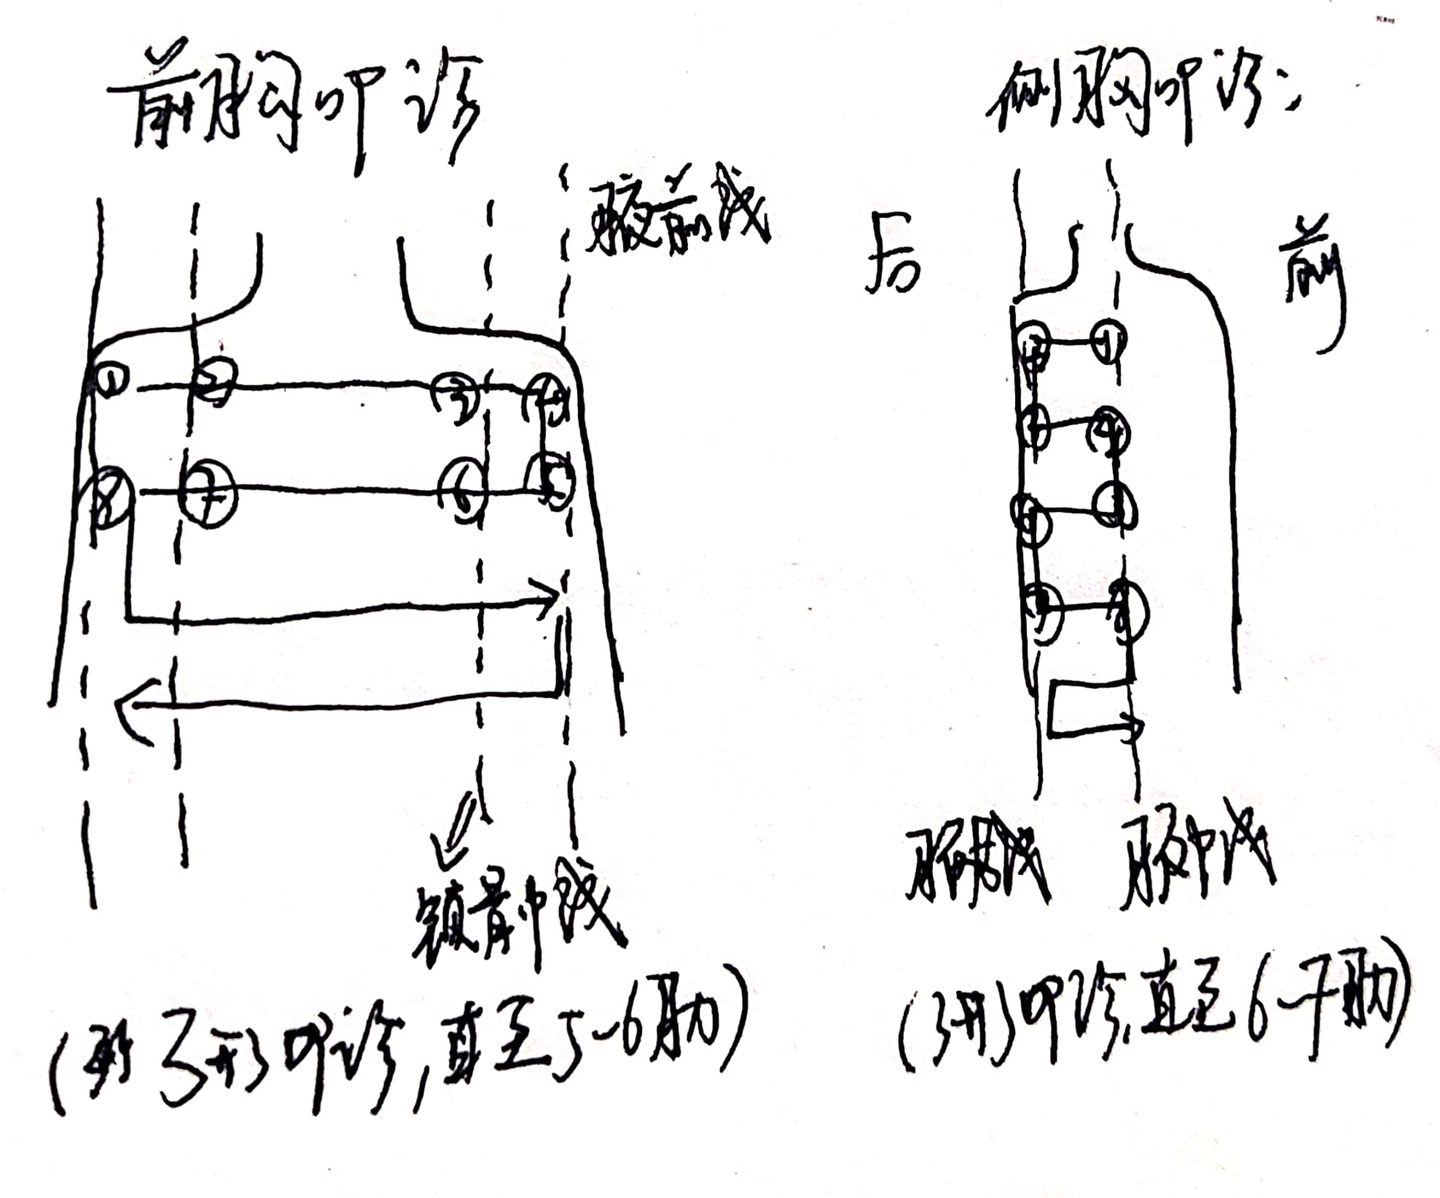 前胸叩诊
腋前线
① ② ③ ④
⑧ ⑦ ⑥ ⑤
锁骨中线
3形叩诊,直至5-6肋)
侧胸叩诊:
后 前
② ①
③ ④
⑥ ⑤
⑦ ⑧
腋后线 腋中线
(3形叩诊,直至6-7肋)